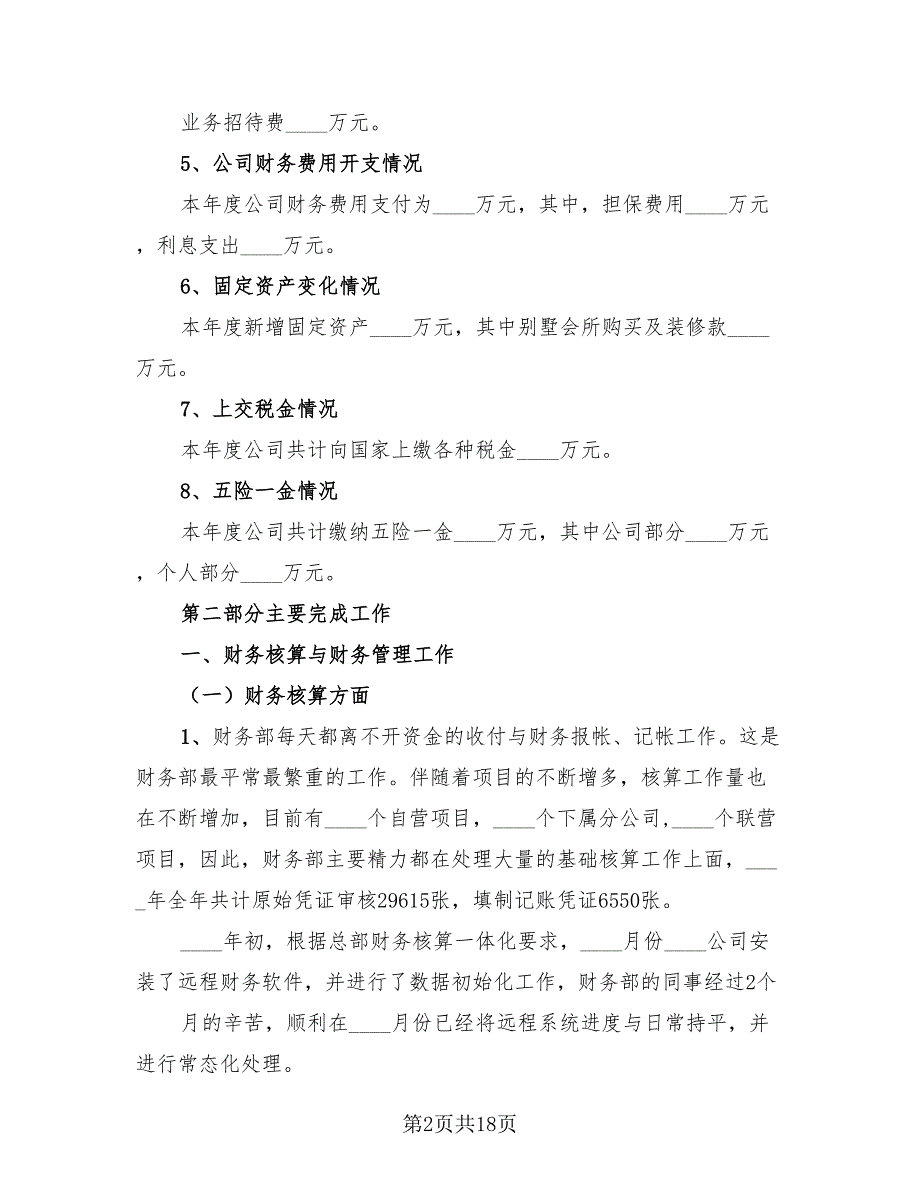 业务招待费____万元。
5、公司财务费用开支情况
本年度公司财务费用支付为____万元，其中，担保费用____万元
，利息支出____万元。
6、固定资产变化情况
本年度新增固定资产____万元，其中别墅会所购买及装修款____
万元。
7、上交税金情况
本年度公司共计向国家上缴各种税金____万元。
8、五险一金情况
本年度公司共计缴纳五险一金____万元，其中公司部分____万元
，个人部分____万元。
第二部分主要完成工作
一、财务核算与财务管理工作
（一）财务核算方面
1、财务部每天都离不开资金的收付与财务报帐、记帐工作。这是
财务部最平常最繁重的工作。伴随着项目的不断增多，核算工作量也
在不断增加，目前有____个自营项目，____个下属分公司,____个联营
项目，因此，财务部主要精力都在处理大量的基础核算工作上面，___
_年全年共计原始凭证审核29615张，填制记账凭证6550张。
____年初，根据总部财务核算一体化要求，____月份____公司安
装了远程财务软件，并进行了数据初始化工作，财务部的同事经过2个
月的辛苦，顺利在____月份已经将远程系统进度与日常持平，并
进行常态化处理。
第2页共18页